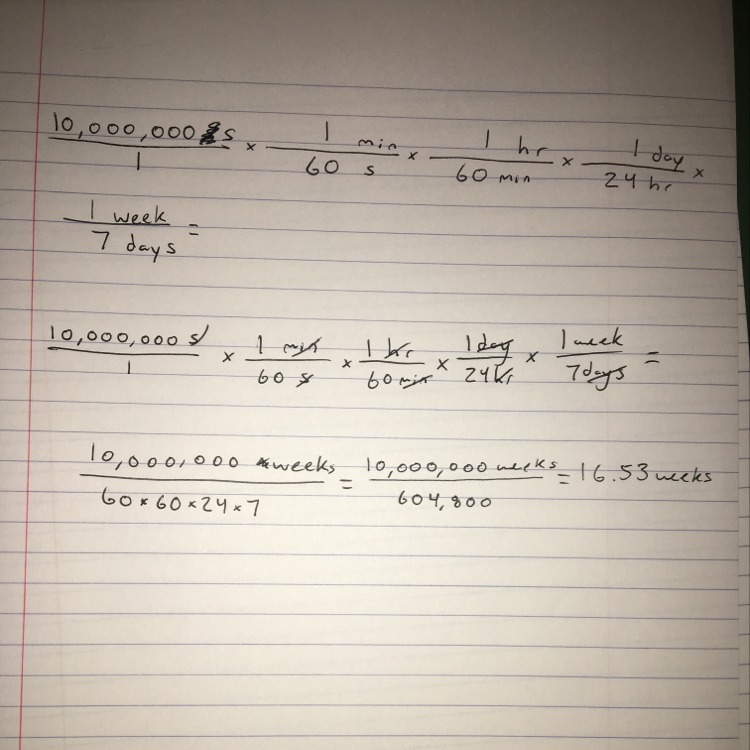 10,000,000 s / 1 × 1 min / 60 s × 1 hr / 60 min × 1 day / 24 hr ×
1 week / 7 days =
10,000,000 s / 1 × 1 min / 60 s × 1 hr / 60 min × 1 day / 24 hr × 1 week / 7 days =
10,000,000 weeks / 60 × 60 × 24 × 7 = 10,000,000 weeks / 604,800 = 16.53 weeks